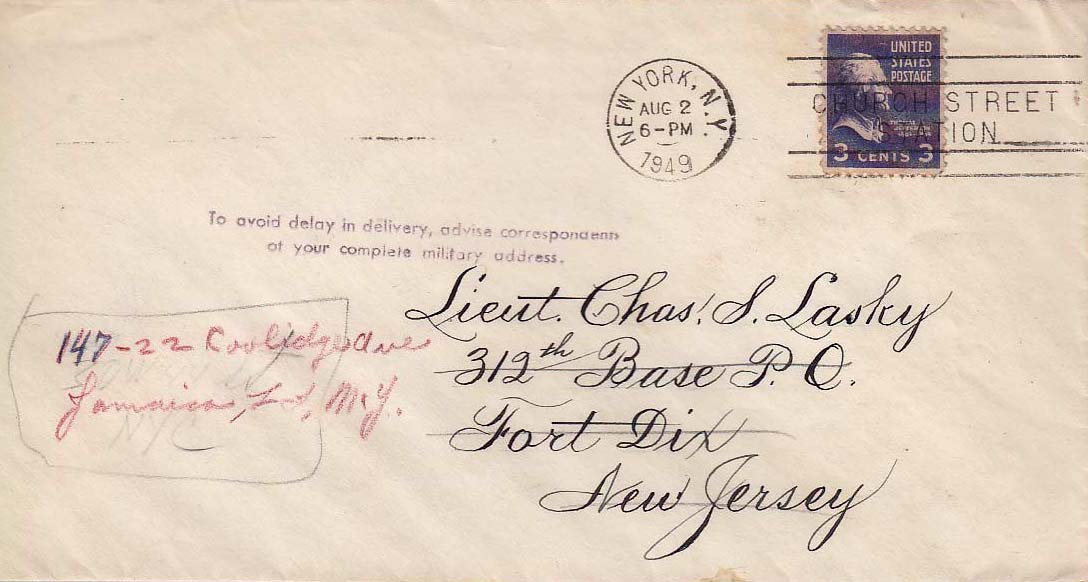 NEW YORK, N.Y.
AUG 2
6-PM
1949
UNITED
STATES
POSTAGE
3 CENTS 3
CHURCH STREET
STATION
To avoid delay in delivery, advise correspondents
of your complete military address.
Lieut. Chas. S. Lasky
312th Base P.O.
Fort Dix
New Jersey
147-22 Coolidge Ave
Jamaica, L I, N.Y.
NYC